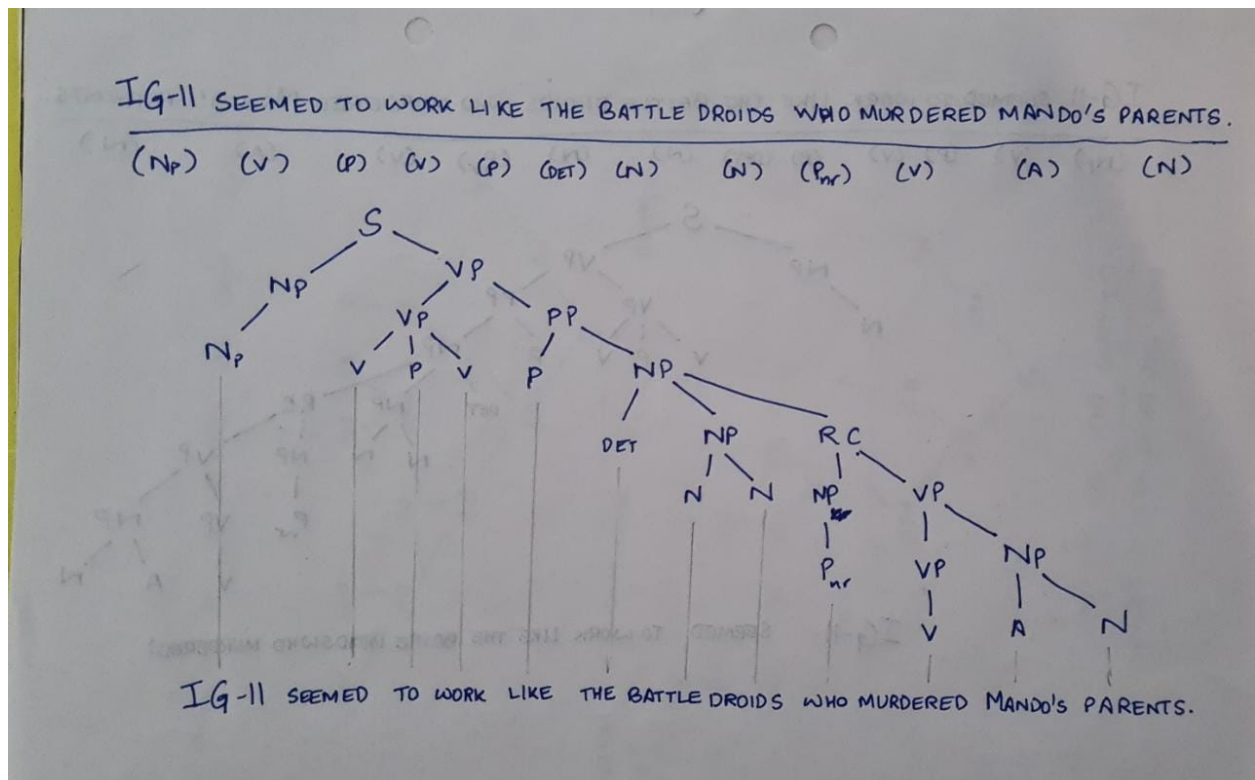 IG-11 SEEMED TO WORK LIKE THE BATTLE DROIDS WHO MURDERED MANDO'S PARENTS.
(Np) (V) (P) (V) (P) (DET) (N) (N) (Pnr) (V) (A) (N)
S
NP VP
VP PP
Np V P V P NP
DET NP RC
N N NP VP
Pnr VP NP
V A N
IG-11 SEEMED TO WORK LIKE THE BATTLE DROIDS WHO MURDERED MANDO'S PARENTS.